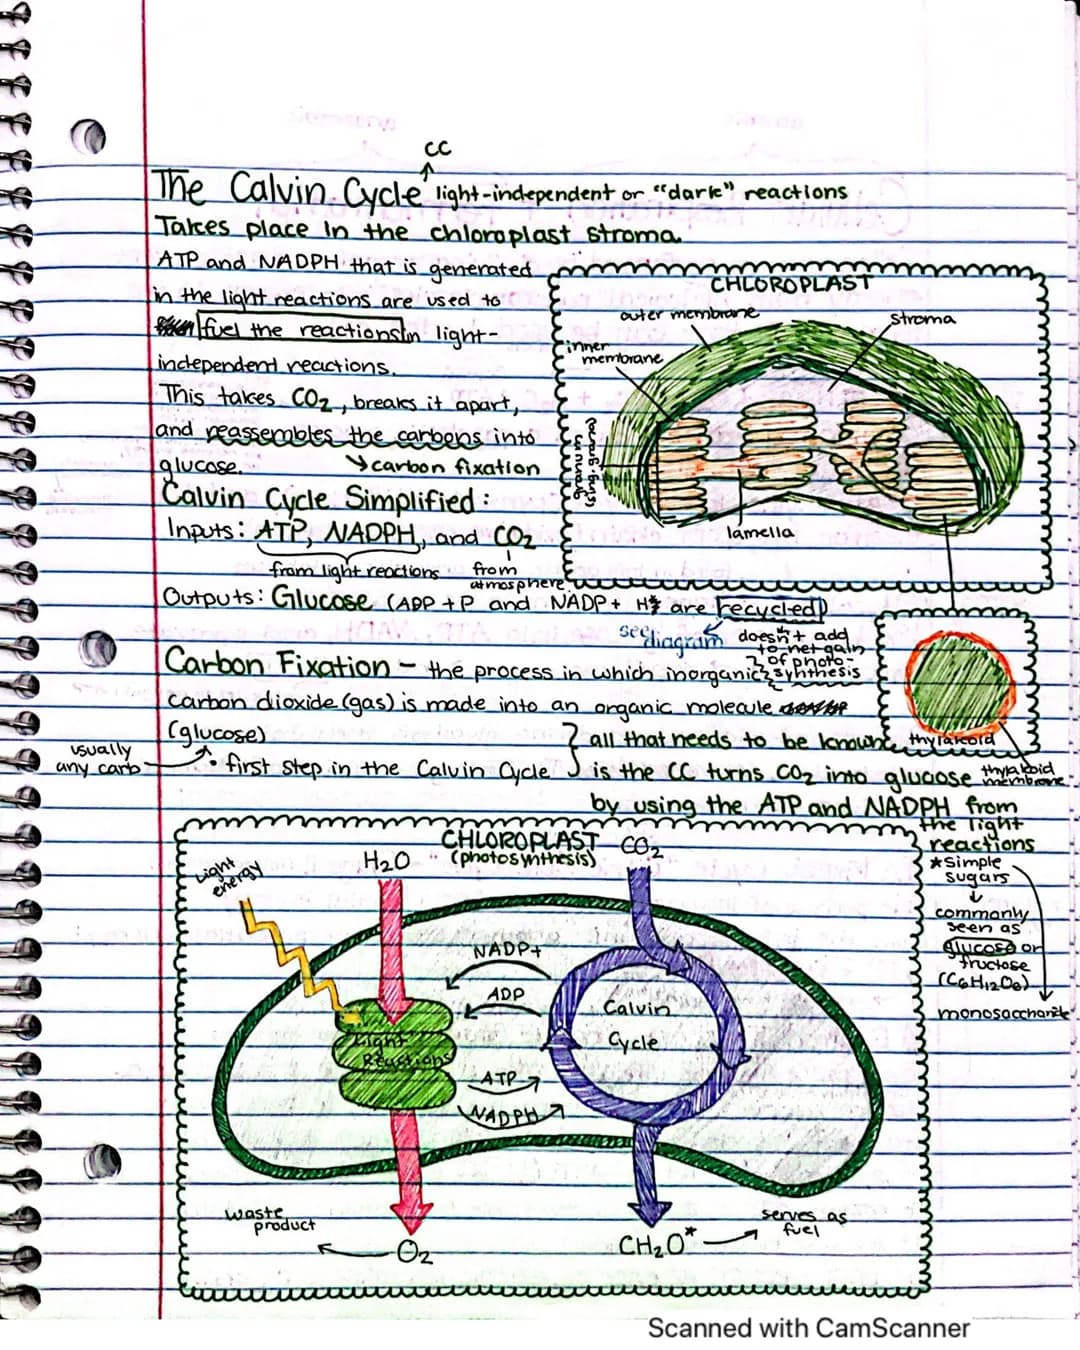 CC
The Calvin Cycle light-independent or "dark" reactions
Takes place in the chloroplast stroma
ATP and NADPH that is generated
in the light reactions are used to
fuel the reactions in light-
independent reactions.
This takes CO2, breaks it apart,
and reassembles the carbons into
glucose. carbon fixation
CHLOROPLAST
outer membrane
stroma
inner
membrane
lamella
Calvin Cycle Simplified:
Inputs: ATP, NADPH, and CO2
from light reactions
from
atmosphere
Outputs: Glucose (ADP + P and NADP+ H are recycled)
see diagram
doesn't add
to net gain
of photo-
synthesis
Carbon Fixation - the process in which inorganic
carbon dioxide (gas) is made into an organic molecule
(glucose)
usually
any carb
• first step in the Calvin Cycle
all that needs to be known
is the CC turns CO2 into glucose
by using the ATP and NADPH from
the light
reactions
thylakoid
thylakoid
membrane
*simple
sugars
commonly
seen as
glucose or
fructose
(C6H12O6)
monosaccharide
CHLOROPLAST
(photosynthesis)
Light
energy
H2O
CO2
NADP+
ADP
Light
Reactions
ATP
NADPH
Calvin
Cycle
waste
product
O2
CH2O*
serves as
fuel
Scanned with CamScanner